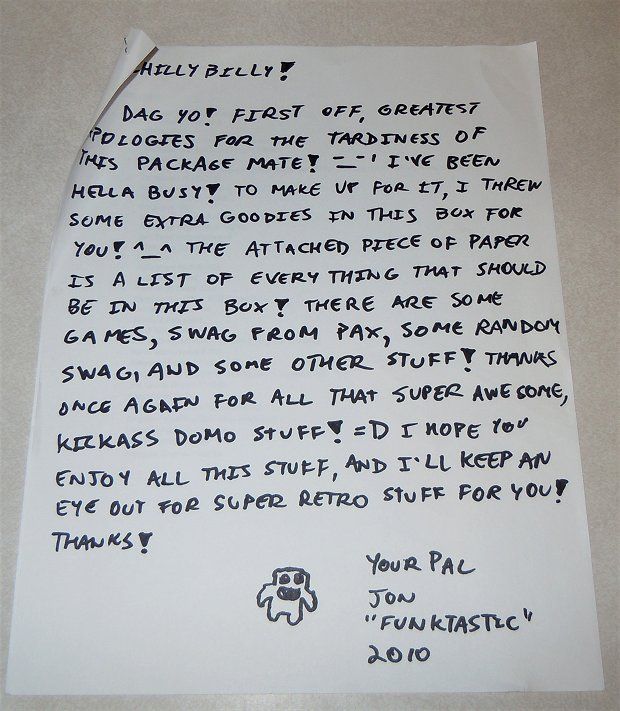 HILLY BILLY!
DAG YO! FIRST OFF, GREATEST
POLOGIES FOR THE TARDINESS OF
THIS PACKAGE MATE! -_-' I'VE BEEN
HELLA BUSY! TO MAKE UP FOR IT, I THREW
SOME EXTRA GOODIES IN THIS BOX FOR
YOU! ^_^ THE ATTACHED PIECE OF PAPER
IS A LIST OF EVERY THING THAT SHOULD
BE IN THIS BOX! THERE ARE SOME
GAMES, SWAG FROM PAX, SOME RANDOM
SWAG, AND SOME OTHER STUFF! THANKS
ONCE AGAIN FOR ALL THAT SUPER AWESOME,
KICKASS DOMO STUFF! =D I HOPE YOU
ENJOY ALL THIS STUFF, AND I'LL KEEP AN
EYE OUT FOR SUPER RETRO STUFF FOR YOU!
THANKS!
YOUR PAL
JON
"FUNKTASTIC"
2010